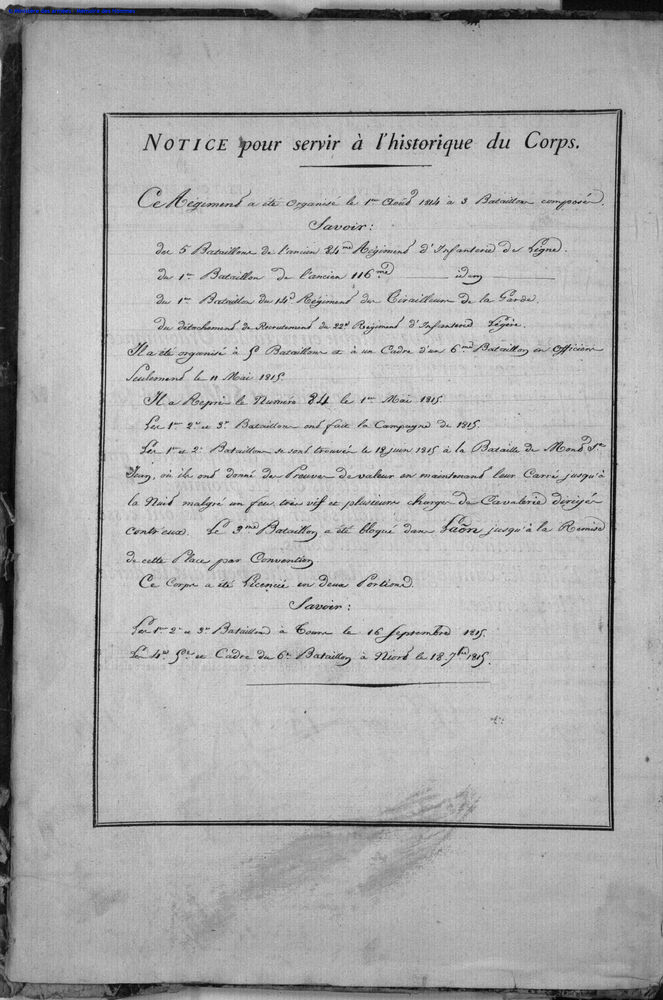 NOTICE pour servir à l'historique du Corps.
Ce Régiment a été organisé le 1er Août 1814 à 3 Bataillons composés.
Savoir :
des 5 Bataillons de l'ancien 84me Régiment d'Infanterie de Ligne.
du 1er Bataillon de l'ancien 116me idem
du 1er Bataillon du 14e Régiment des Tirailleurs de la Garde.
du détachement de Recrutement du 22e Régiment d'Infanterie Légère.
Il a été organisé à 5 Bataillons et à un Cadre d'un 6me Bataillon en officiers
Seulement le 11 Mai 1815.
Il a Repris le Numéro 84 le 1er Mai 1815.
Les 1er 2e et 3e Bataillons ont fait la Campagne de 1815.
Les 1er et 2e Bataillons se sont trouvés le 18 juin 1815 à la Bataille de Mont St
Jean, où ils ont donné des Preuves de valeur en maintenant leur Carré jusqu'à
la Nuit malgré un feu très vif et plusieurs charges de Cavalerie dirigés
contr'eux. Le 3me Bataillon a été bloqué dans Laon jusqu'à la Remise
de cette Place par Convention
Ce Corps a été Licencié en deux Portions.
Savoir :
Les 1er 2e et 3e Bataillons à Tours le 16 Septembre 1815.
Les 4e 5e et Cadre du 6e Bataillon à Niort le 18 7bre 1815.